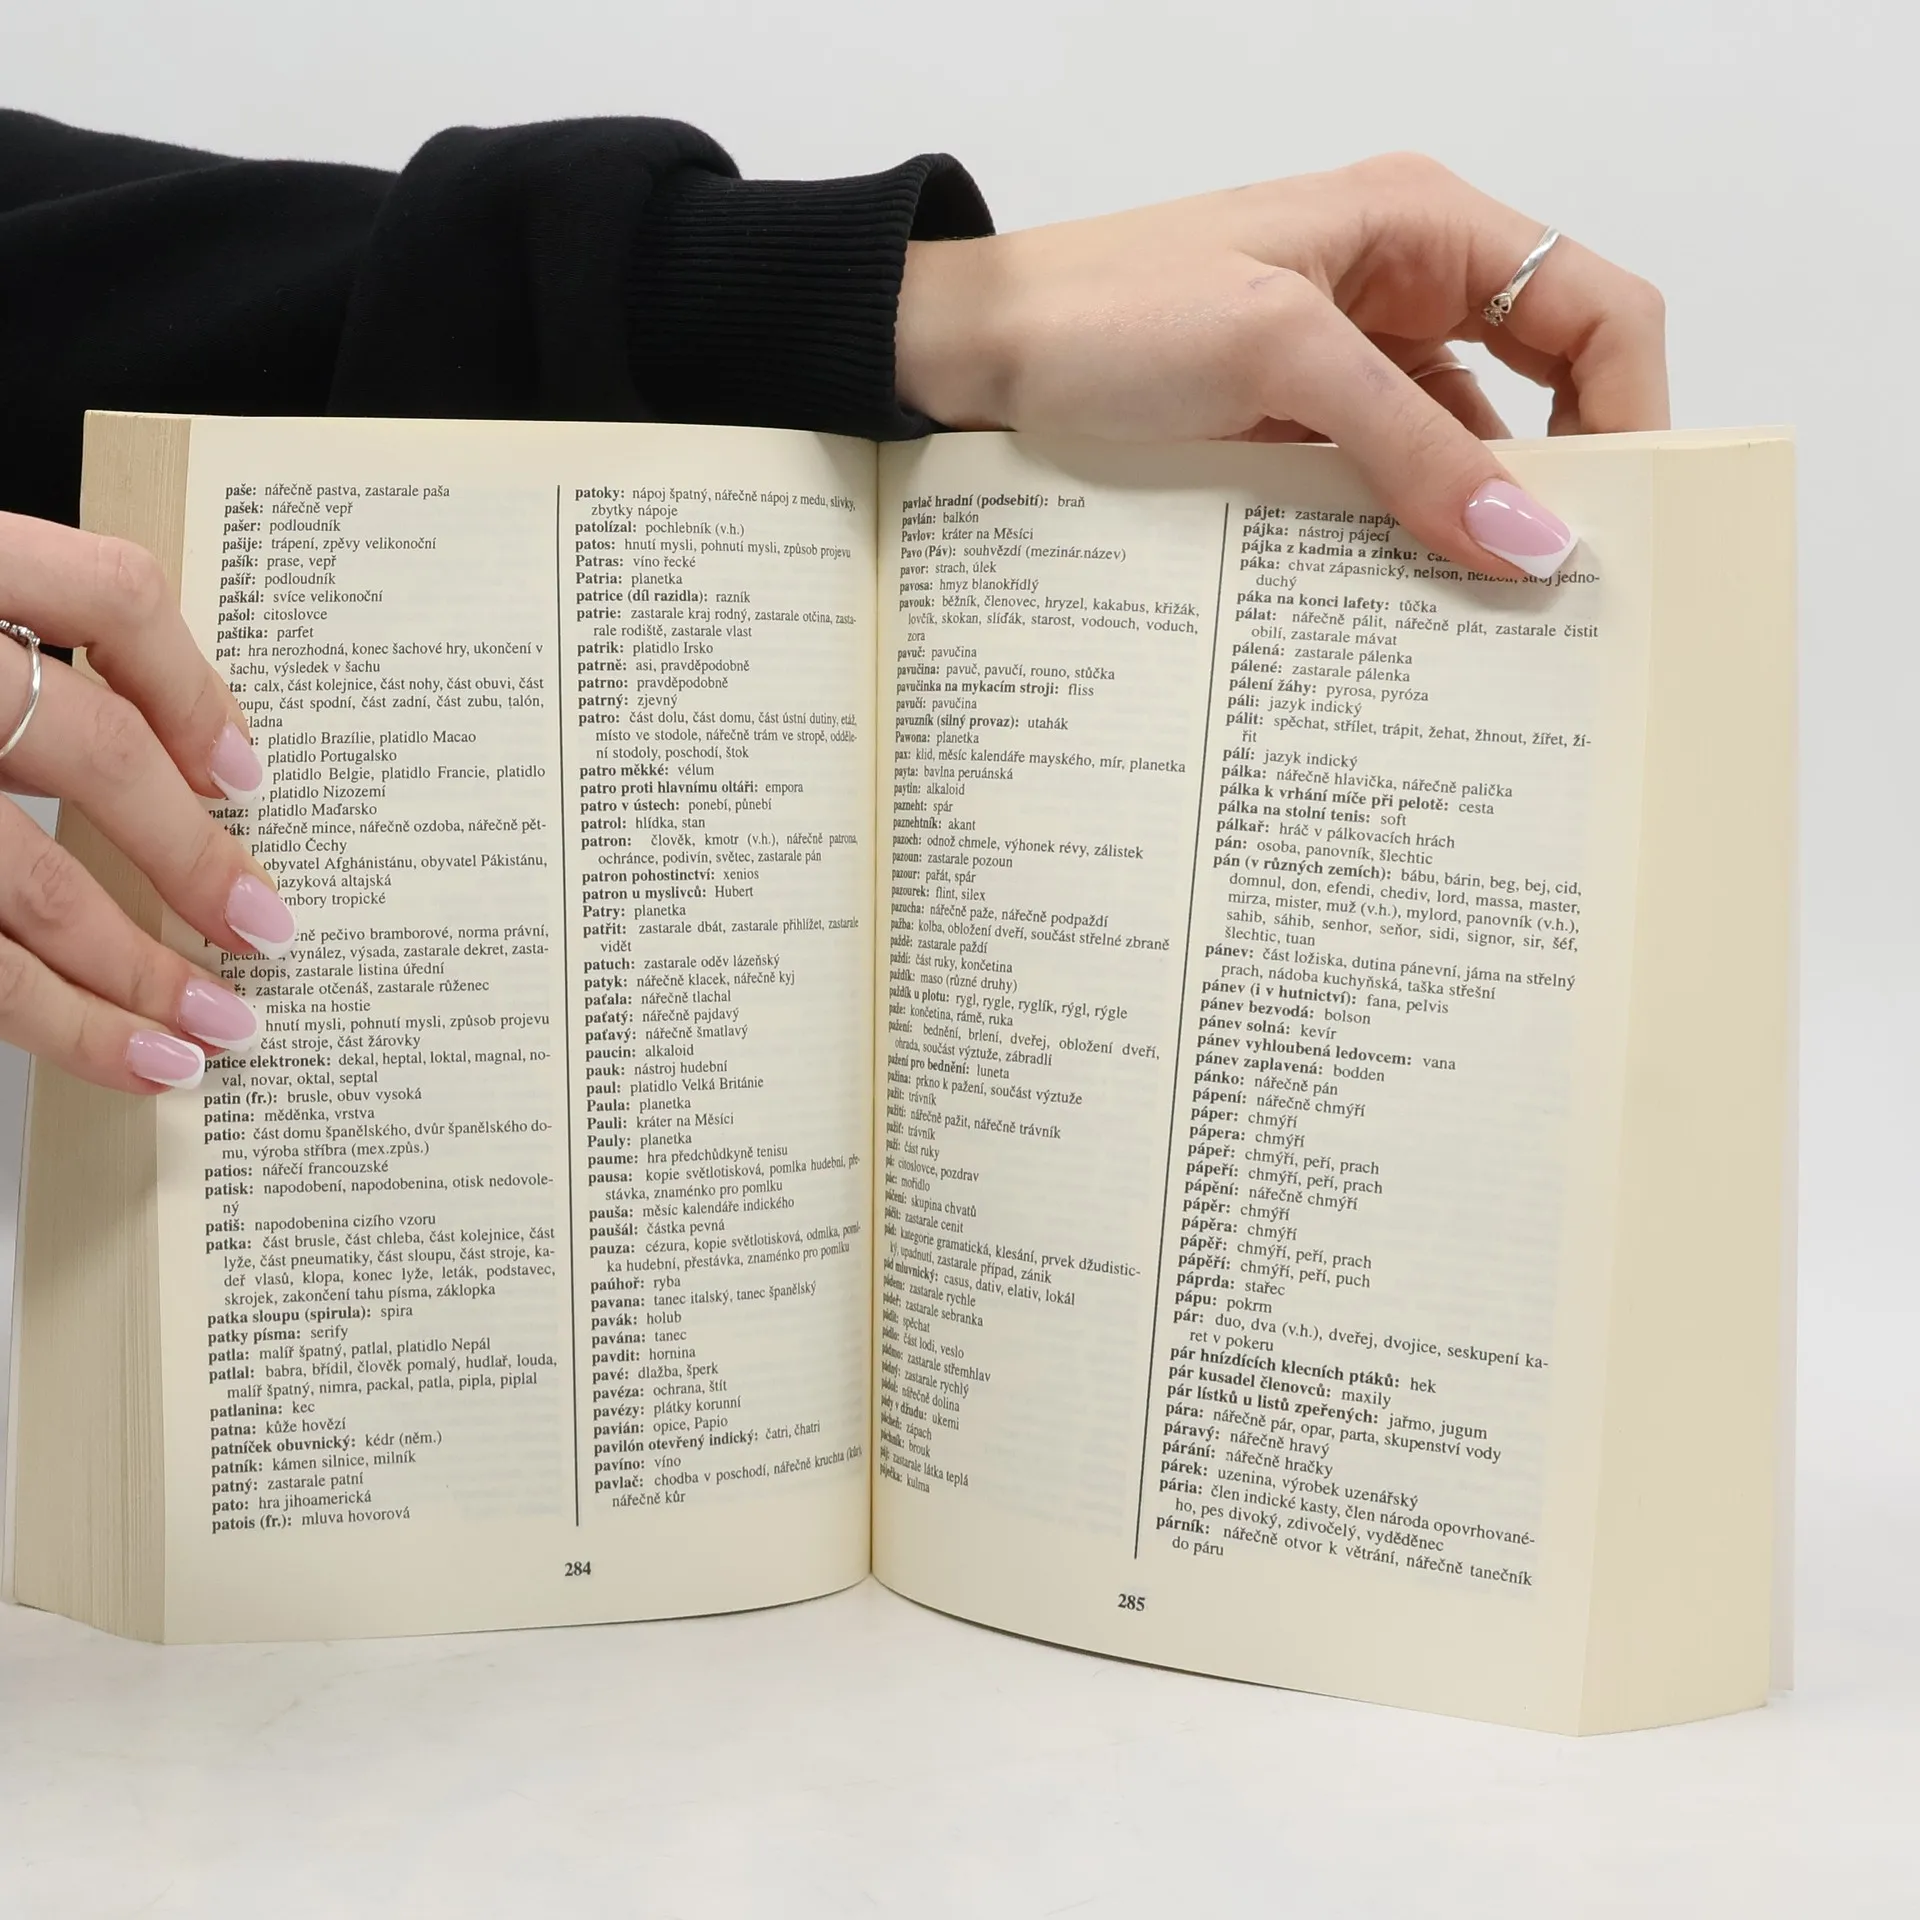 paše: nářečně pastva, zastarale paša
pašek: nářečně vepř
pašer: podloudník
pašije: trápení, zpěvy velikonoční
pašík: prase, vepř
pašíř: podloudník
paškál: svíce velikonoční
pašol: citoslovce
paštika: parfet
pat: hra nerozhodná, konec šachové hry, ukončení v
šachu, výsledek v šachu
calx, část kolejnice, část nohy, část obuvi, část
část spodní, část zadní, část zubu, talón,
platidlo Brazílie, platidlo Macao
platidlo Portugalsko
platidlo Belgie, platidlo Francie, platidlo
, platidlo Nizozemí
pataz: platidlo Maďarsko
nářečně mince, nářečně ozdoba, nářečně pět-
platidlo Čechy
obyvatel Afghánistánu, obyvatel Pákistánu,
jazyková altajská
tropické
pečivo bramborové, norma právní,
vynález, výsada, zastarale dekret, zasta-
rale dopis, zastarale listina úřední
zastarale otčenáš, zastarale růženec
miska na hostie
hnutí mysli, pohnutí mysli, způsob projevu
část stroje, část žárovky
patice elektronek: dekal, heptal, loktal, magnal, no-
val, novar, oktal, septal
patin (fr.): brusle, obuv vysoká
patina: měděnka, vrstva
patio: část domu španělského, dvůr španělského do-
mu, výroba stříbra (mex.způs.)
patios: nářečí francouzské
patisk: napodobení, napodobenina, otisk nedovole-
ný
patiš: napodobenina cizího vzoru
patka: část brusle, část chleba, část kolejnice, část
lyže, část pneumatiky, část sloupu, část stroje, ka-
deř vlasů, klopa, konec lyže, leták, podstavec,
skrojek, zakončení tahu písma, záklopka
patka sloupu (spirula): spira
patky písma: serify
patla: malíř špatný, patlal, platidlo Nepál
patlal: babra, břídil, člověk pomalý, hudlař, louda,
malíř špatný, nimra, packal, patla, pipla, piplal
patlanina: kec
patna: kůže hovězí
patníček obuvnický: kédr (něm.)
patník: kámen silnice, milník
patný: zastarale patní
pato: hra jihoamerická
patois (fr.): mluva hovorová
patoky: nápoj špatný, nářečně nápoj z medu, slivky,
zbytky nápoje
patolízal: pochlebník (v.h.)
patos: hnutí mysli, pohnutí mysli, způsob projevu
Patras: víno řecké
Patria: planetka
patrice (díl razidla): razník
patrie: zastarale kraj rodný, zastarale otčina, zasta-
rale rodiště, zastarale vlast
patrik: platidlo Irsko
patrně: asi, pravděpodobně
patrno: pravděpodobně
patrný: zjevný
patro: část dolu, část domu, část ústní dutiny, etáž,
místo ve stodole, nářečně trám ve stropě, odděle-
ní stodoly, poschodí, štok
patro měkké: vélum
patro proti hlavnímu oltáři: empora
patro v ústech: ponebí, půnebí
patrol: hlídka, stan
patron: člověk, kmotr (v.h.), nářečně patrona,
ochránce, podivín, světec, zastarale pán
patron pohostinství: xenios
patron u myslivců: Hubert
Patry: planetka
patřit: zastarale dbát, zastarale přihlížet, zastarale
vidět
patuch: zastarale oděv lázeňský
patyk: nářečně klacek, nářečně kyj
paťala: nářečně tlachal
paťatý: nářečně pajdavý
paťavý: nářečně šmatlavý
paucin: alkaloid
pauk: nástroj hudební
paul: platidlo Velká Británie
Paula: planetka
Pauli: kráter na Měsíci
Pauly: planetka
paume: hra předchůdkyně tenisu
pausa: kopie světlotisková, pomlka hudební, pře-
stávka, znaménko pro pomlku
pauša: měsíc kalendáře indického
paušál: částka pevná
pauza: cézura, kopie světlotisková, odmlka, poml-
ka hudební, přestávka, znaménko pro pomlku
paúhoř: ryba
pavana: tanec italský, tanec španělský
pavák: holub
pavána: tanec
pavdit: hornina
pavé: dlažba, šperk
pavéza: ochrana, štít
pavézy: plátky korunní
pavián: opice, Papio
pavilón otevřený indický: čatri, čhatri
pavíno: víno
pavlač: chodba v poschodí, nářečně kruchta (kůr),
nářečně kůr
284
pavlač hradní (podsebití): braň
pavlán: balkón
Pavlov: kráter na Měsíci
Pavo (Páv): souhvězdí (mezinár.název)
pavor: strach, úlek
pavosa: hmyz blanokřídlý
pavouk: běžník, členovec, hryzel, kakabus, křižák,
lovčík, skokan, slíďák, starost, vodouch, voduch,
zora
pavuč: pavučina
pavučina: pavuč, pavučí, rouno, stůčka
pavučinka na mykacím stroji: fliss
pavučí: pavučina
pavuzník (silný provaz): utahák
Pawona: planetka
pax: klid, měsíc kalendáře mayského, mír, planetka
payta: bavlna peruánská
paytin: alkaloid
pazneht: spár
paznehtník: akant
pazoch: odnož chmele, výhonek révy, zálistek
pazoun: zastarale pozoun
pazour: pařát, spár
pazourek: flint, silex
pazucha: nářečně paže, nářečně podpaždí
pažba: kolba, obložení dveří, součást střelné zbraně
paždě: zastarale paždí
paždí: část ruky, končetina
paždík: maso (různé druhy)
paždík u plotu: rygl, rygle, ryglík, rýgl, rýgle
paže: končetina, rámě, ruka
pažení: bednění, brlení, dveřej, obložení dveří,
ohrada, součást výztuže, zábradlí
pažení pro bednění: luneta
pažina: prkno k pažení, součást výztuže
pažit: trávník
pažití: nářečně pažit, nářečně trávník
pažiť: trávník
paží: část ruky
pá: citoslovce, pozdrav
pác: mořidlo
páčení: skupina chvatů
páčit: zastarale cenit
pád: kategorie gramatická, klesání, prvek džudistic-
ký, upadnutí, zastarale případ, zánik
pád mluvnický: casus, dativ, elativ, lokál
pádem: zastarale rychle
pádeř: zastarale sebranka
pádit: spěchat
pádlo: část lodi, veslo
pádmo: zastarale střemhlav
pádný: zastarale rychlý
pádol: nářečně dolina
pády v džudu: ukemi
pácheň: zápach
páchník: brouk
páj: zastarale látka teplá
páječka: kulma
pájet: zastarale
pájka: nástroj pájecí
pájka z kadmia a zinku:
páka: chvat zápasnický, nelson, jedno-
duchý
páka na konci lafety: tůčka
pálat: nářečně pálit, nářečně plát, zastarale čistit
obilí, zastarale mávat
pálená: zastarale pálenka
pálené: zastarale pálenka
pálení žáhy: pyrosa, pyróza
páli: jazyk indický
pálit: spěchat, střílet, trápit, žehat, žhnout, žířet, ží-
řit
pálí: jazyk indický
pálka: nářečně hlavička, nářečně palička
pálka k vrhání míče při pelotě: cesta
pálka na stolní tenis: soft
pálkař: hráč v pálkovacích hrách
pán: osoba, panovník, šlechtic
pán (v různých zemích): bábu, bárin, beg, bej, cid,
domnul, don, efendi, chediv, lord, massa, master,
mirza, mister, muž (v.h.), mylord, panovník (v.h.),
sahib, sáhib, senhor, seňor, sidi, signor, sir, šéf,
šlechtic, tuan
pánev: část ložiska, dutina pánevní, jáma na střelný
prach, nádoba kuchyňská, taška střešní
pánev (i v hutnictví): fana, pelvis
pánev bezvodá: bolson
pánev solná: kevír
pánev vyhloubená ledovcem: vana
pánev zaplavená: bodden
pánko: nářečně pán
pápení: nářečně chmýří
páper: chmýří
pápera: chmýří
pápeř: chmýří, peří, prach
pápeří: chmýří, peří, prach
pápění: nářečně chmýří
pápěr: chmýří
pápěra: chmýří
pápěř: chmýří, peří, prach
pápěří: chmýří, peří, puch
páprda: stařec
pápu: pokrm
pár: duo, dva (v.h.), dveřej, dvojice, seskupení ka-
ret v pokeru
pár hnízdících klecních ptáků: hek
pár kusadel členovců: maxily
pár lístků u listů zpeřených: jařmo, jugum
pára: nářečně pár, opar, parta, skupenství vody
páravý: nářečně hravý
párání: nářečně hračky
párek: uzenina, výrobek uzenářský
pária: člen indické kasty, člen národa opovrhované-
ho, pes divoký, zdivočelý, vyděděnec
párník: nářečně otvor k větrání, nářečně tanečník
do páru
285